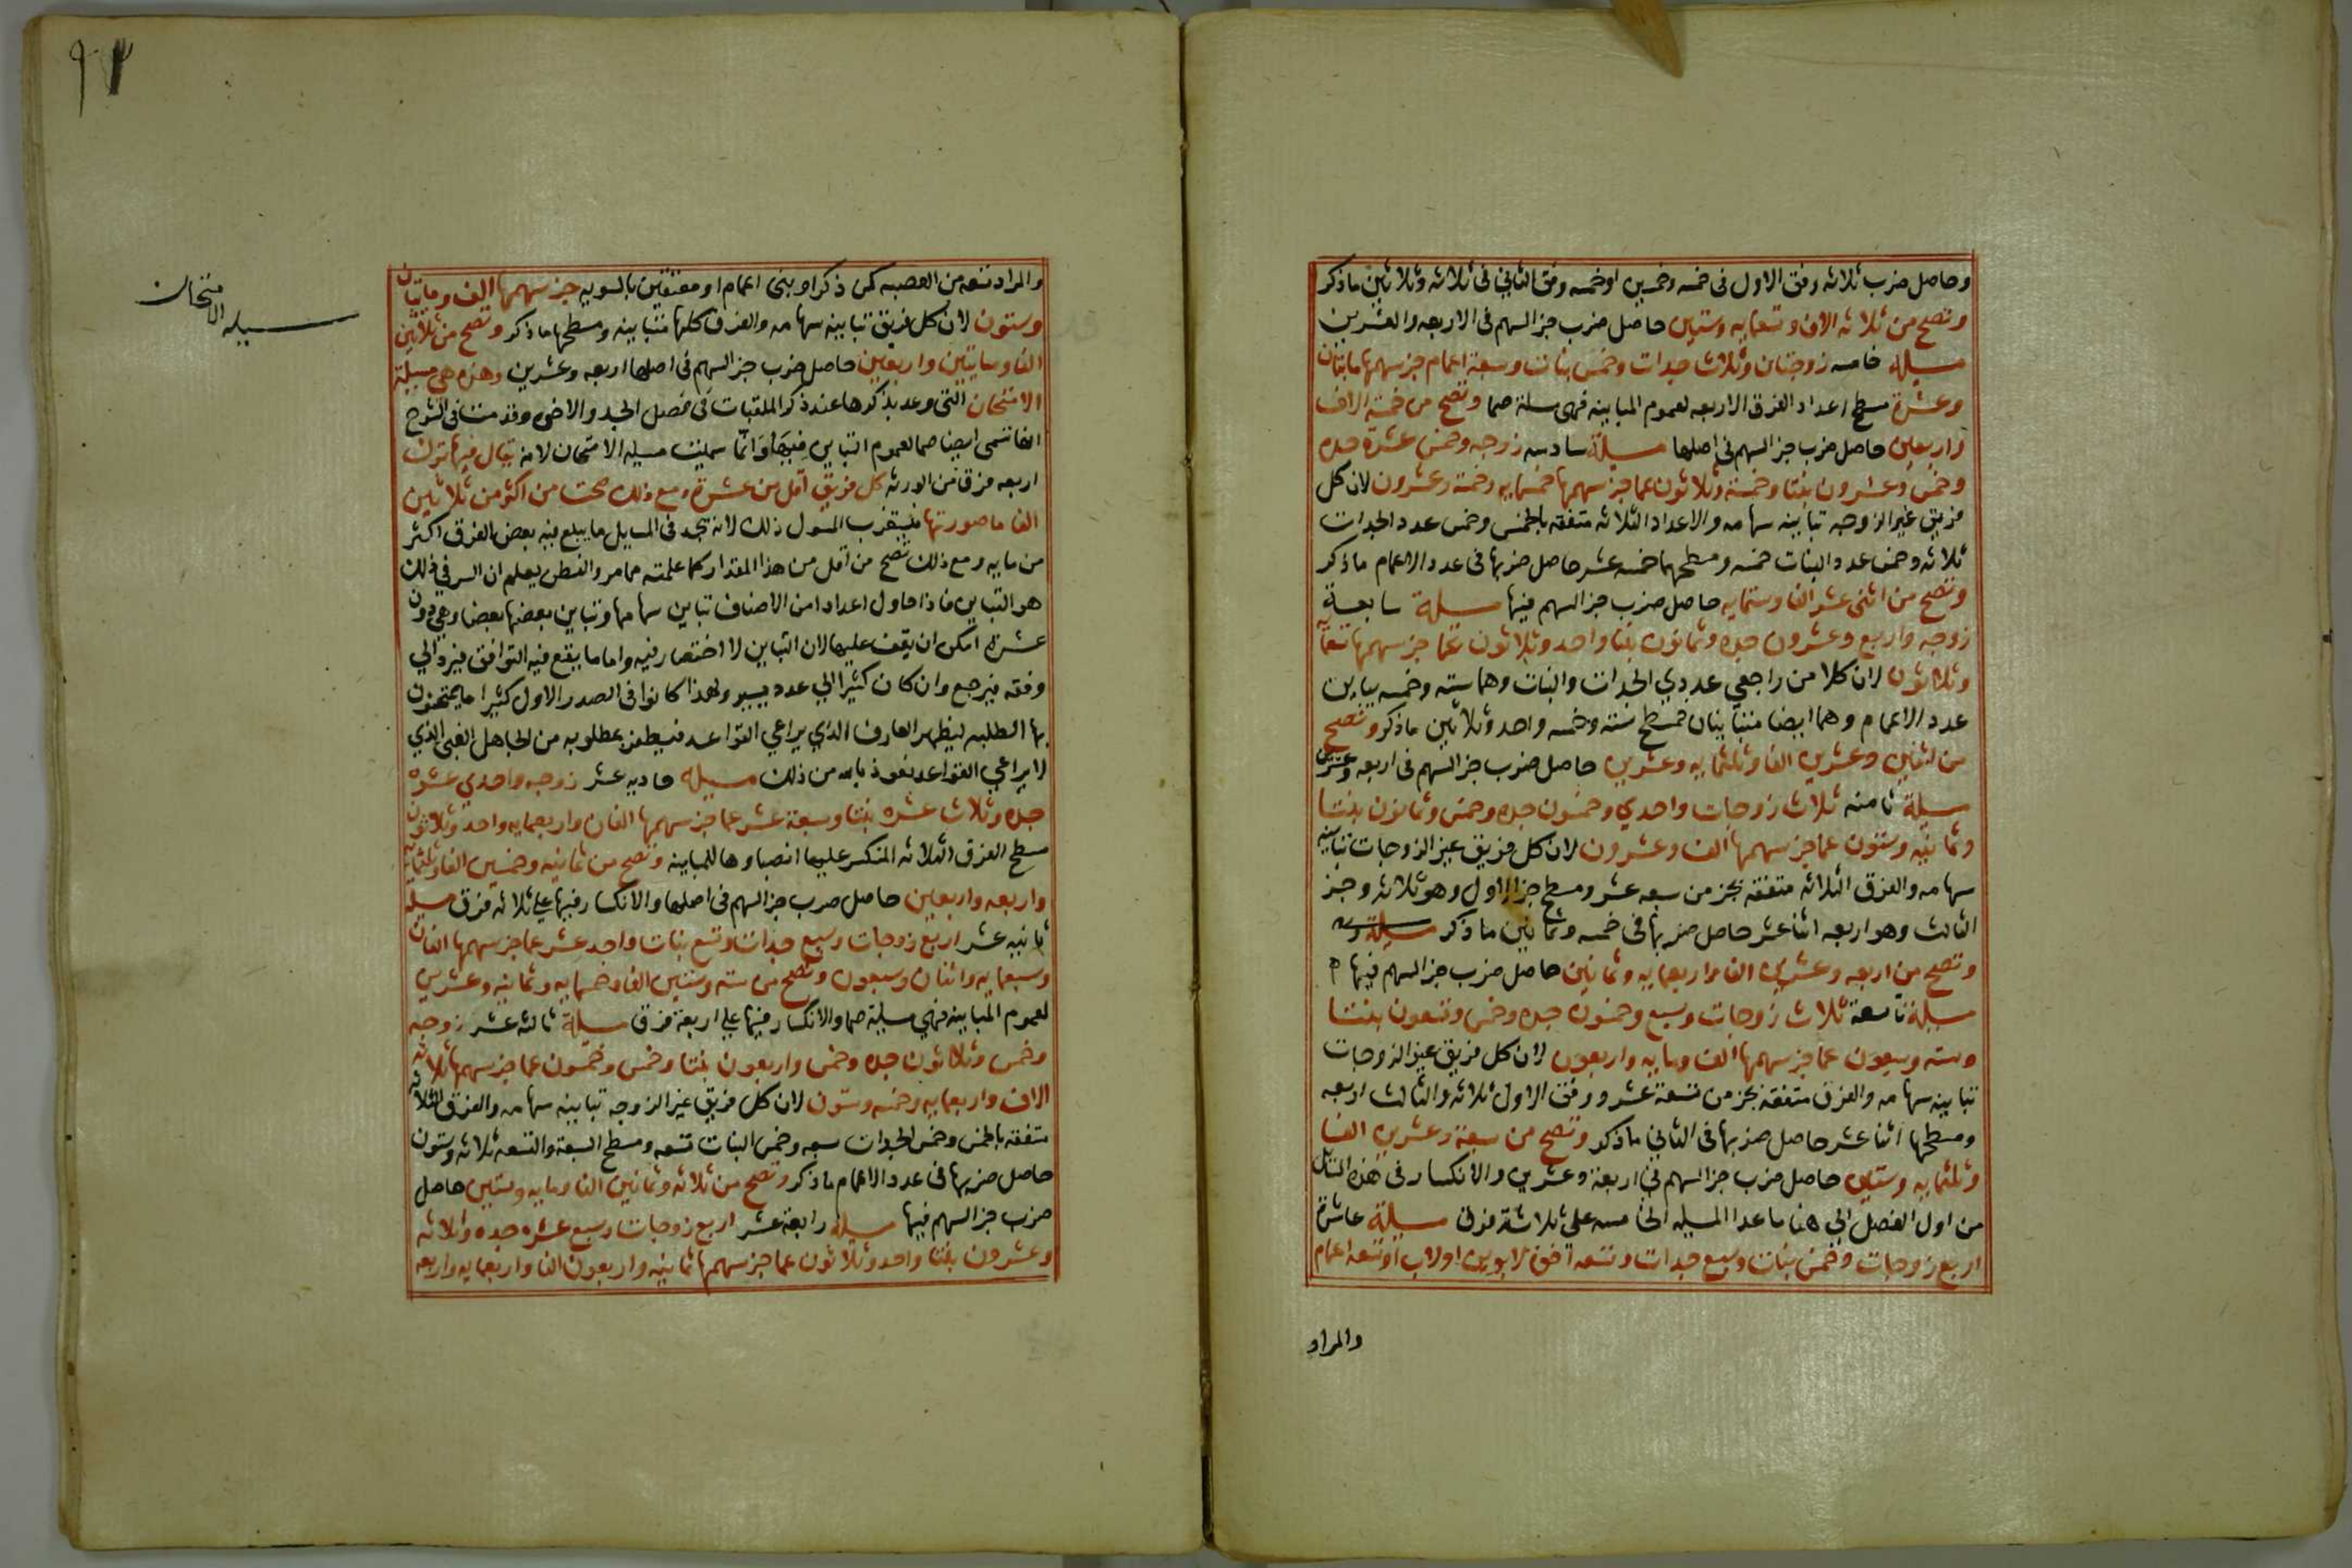 وحاصل ضرب ثلاثه وفق الاول فى خمسه وخمسين اوخمسه وفق الثانى فى ثلاثه وثلاثين ماذكر
وتصح من ثلاثه الاف وتسعمايه وستين حاصل ضرب جز السهم فى الاربعه والعشرين
مسيله خامسه زوجتان وثلاث جدات وخمس بنات وسبعة اعمام جز سهمها مايتان
وعشرة مسطح اعداد الفرق الاربعه لعموم المباينه فهى مسلة صما وتصح من خمسة الاف
واربعين حاصل ضرب جز السهم فى اصلها مسيلة سادسه زوجه وخمس عشرة جده
وخمس وعشرون بنتا وخمسة وثلاثون عما جز سهمها خمسمايه وخمسة وعشرون لان كل
فريق غير الزوجه تباينه سهامه والاعداد الثلاثه متفقه بالخمس وخمس عدد الجدات
ثلاثه وخمس عدد البنات خمسه ومسطحهما خمسه عشر حاصل ضربها فى عدد الاعمام ماذكر
وتصح من اثنى عشر الفا وستمايه حاصل ضرب جز السهم فيها مسلة سابعة
زوجه واربع وعشرون جده وثمانون بنتا واحد وثلاثون عما جز سهمها تسعمايه
وثلاثون لان كلا من راجعي عددي الجدات والبنات وهما سته وخمسه يباين
عدد الاعمام وهما ايضا متباينان فمسطح سته وخمسه واحد وثلاثين ماذكر وتصح
من اثنين وعشرين الفا وثلثمايه وعشرين حاصل ضرب جز السهم فى اربعه وعشرين
مسيلة ثامنه ثلاث زوجات واحدي وخمسون جده وخمس وثمانون بنتا
وثمانيه وستون عما جز سهمها الف وعشرون لان كل فريق غير الزوجات تباينه
سهامه والفرق الثلاثه متفقه بجز من سبعه عشر ومسطح جز الاول وهو ثلاثه وجز
الثالث وهو اربعه اثنا عشر حاصل ضربها فى خمسه وثمانين ماذكر مسيلة
وتصح من اربعه وعشرين الفا واربعمايه وثمانين حاصل ضرب جز السهم فيها
مسيلة تاسعة ثلاث زوجات وسبع وخمسون جده وخمس وتسعون بنتا
وسته وسبعون عما جز سهمها الف ومايه واربعون لان كل فريق غير الزوجات
تباينه سهامه والفرق متفقه بجز من تسعة عشر ووفق الاول ثلاثه والثالث اربعه
ومسطحها اثنا عشر حاصل ضربها فى الثانى ماذكر وتصح من سبعة وعشرين الفا
وثلثمايه وستين حاصل ضرب جز السهم فى اربعة وعشرين والانكسار فى هذه المسائل
من اول الفصل الى هنا ما عدا المسيله الخامسه على ثلاثة فرق مسيلة عاشرة
اربع زوجات وخمس بنات وسبع جدات وتسعه اخوة لابوين او لاب او تسعه اعمام
والمراد
٩٣
والمراد تسعه من العصبه كمن ذكر او بنى اعمام او معتقين بالسويه جز سهمها الف ومايتان
وستون لان كل فريق تباينه سهامه والفرق كلها متباينه ومسطحها ماذكر وتصح من ثلاثين
الفا ومايتين واربعين حاصل ضرب جز السهم فى اصلها اربعه وعشرين وهذه هى مسيلة
الامتحان التى وعد بذكرها عند ذكر الملقبات فى فصل الجد والاخوه وقدمنا فى الشرح
انها تسمى ايضا صما لعموم التباين فيها وانما سميت مسيله الامتحان لانه يقال فيها ترك
اربعه فرق من الورثه كل فريق اقل من عشرة ومع ذلك صحت من اكثر من ثلاثين
الفا ما صورتها فيستغرب المسول ذلك لانه يجد فى المسايل ما يبلغ فيه بعض الفرق اكثر
من مايه ومع ذلك تصح من اقل من هذا المقدار كما علمته مما مر والفطن يعلم ان السر في ذلك
هو التباين فاذا حاول اعدادا من الاصناف تباين سهامها وتباين بعضها بعضا وهى دون
عشره امكن ان يقف عليها لان التباين لا اختصار فيه واما ما يقع فيه التوافق فيرد الي
وفقه فيرجع وان كان كثيرا الي عدد يسير ولهذا كانوا فى الصدر الاول كثيرا ما يمتحنون
بها الطلبه ليظهر العارف الذي يراعي القواعد فيظفر بمطلوبه من الجاهل الغبى الذي
لا يراعي القواعد نعوذ بالله من ذلك مسيله حاديه عشر زوجه واحدي عشره
جده وثلاث عشره بنتا وسبعة عشر عما جز سهمها الفان واربعمايه واحد وثلاثون
مسطح الفرق الثلاثه المنكسر عليها انصباوها للمباينه وتصح من ثمانيه وخمسين الفا وثلثمايه
واربعه واربعين حاصل ضرب جز السهم فى اصلها والانكسار فيها علي ثلاثه فرق مسيله
ثانيه عشر اربع زوجات وسبع جدات وتسع بنات واحد عشر عما جز سهمها الفان
وسبعمايه واثنان وسبعون وتصح من سته وستين الفا وخمسمايه وثمانيه وعشرين
لعموم المباينه فهي مسيلة صما والانكسار فيها علي اربعة فرق مسيلة ثالثه عشر زوجه
وخمس وثلاثون جده وخمس واربعون بنتا وخمس وخمسون عما جز سهمها ثلاثه
الاف واربعمايه وخمسه وستون لان كل فريق غير الزوجه تباينه سهامه والفرق الثلاثه
متفقه بالخمس وخمس الجدات سبعه وخمس البنات تسعه ومسطح السبعة والتسعه ثلاثه وستون
حاصل ضربها فى عدد الاعمام ماذكر وتصح من ثلاثه وثمانين الفا ومايه وستين حاصل
ضرب جز السهم فيها مسيله رابعة عشر اربع زوجات وسبع عشره جده وثلاثه
وعشرون بنتا واحد وثلاثون عما جز سهمها ثمانيه واربعون الفا واربعمايه واربعه
مسيله الامتحان